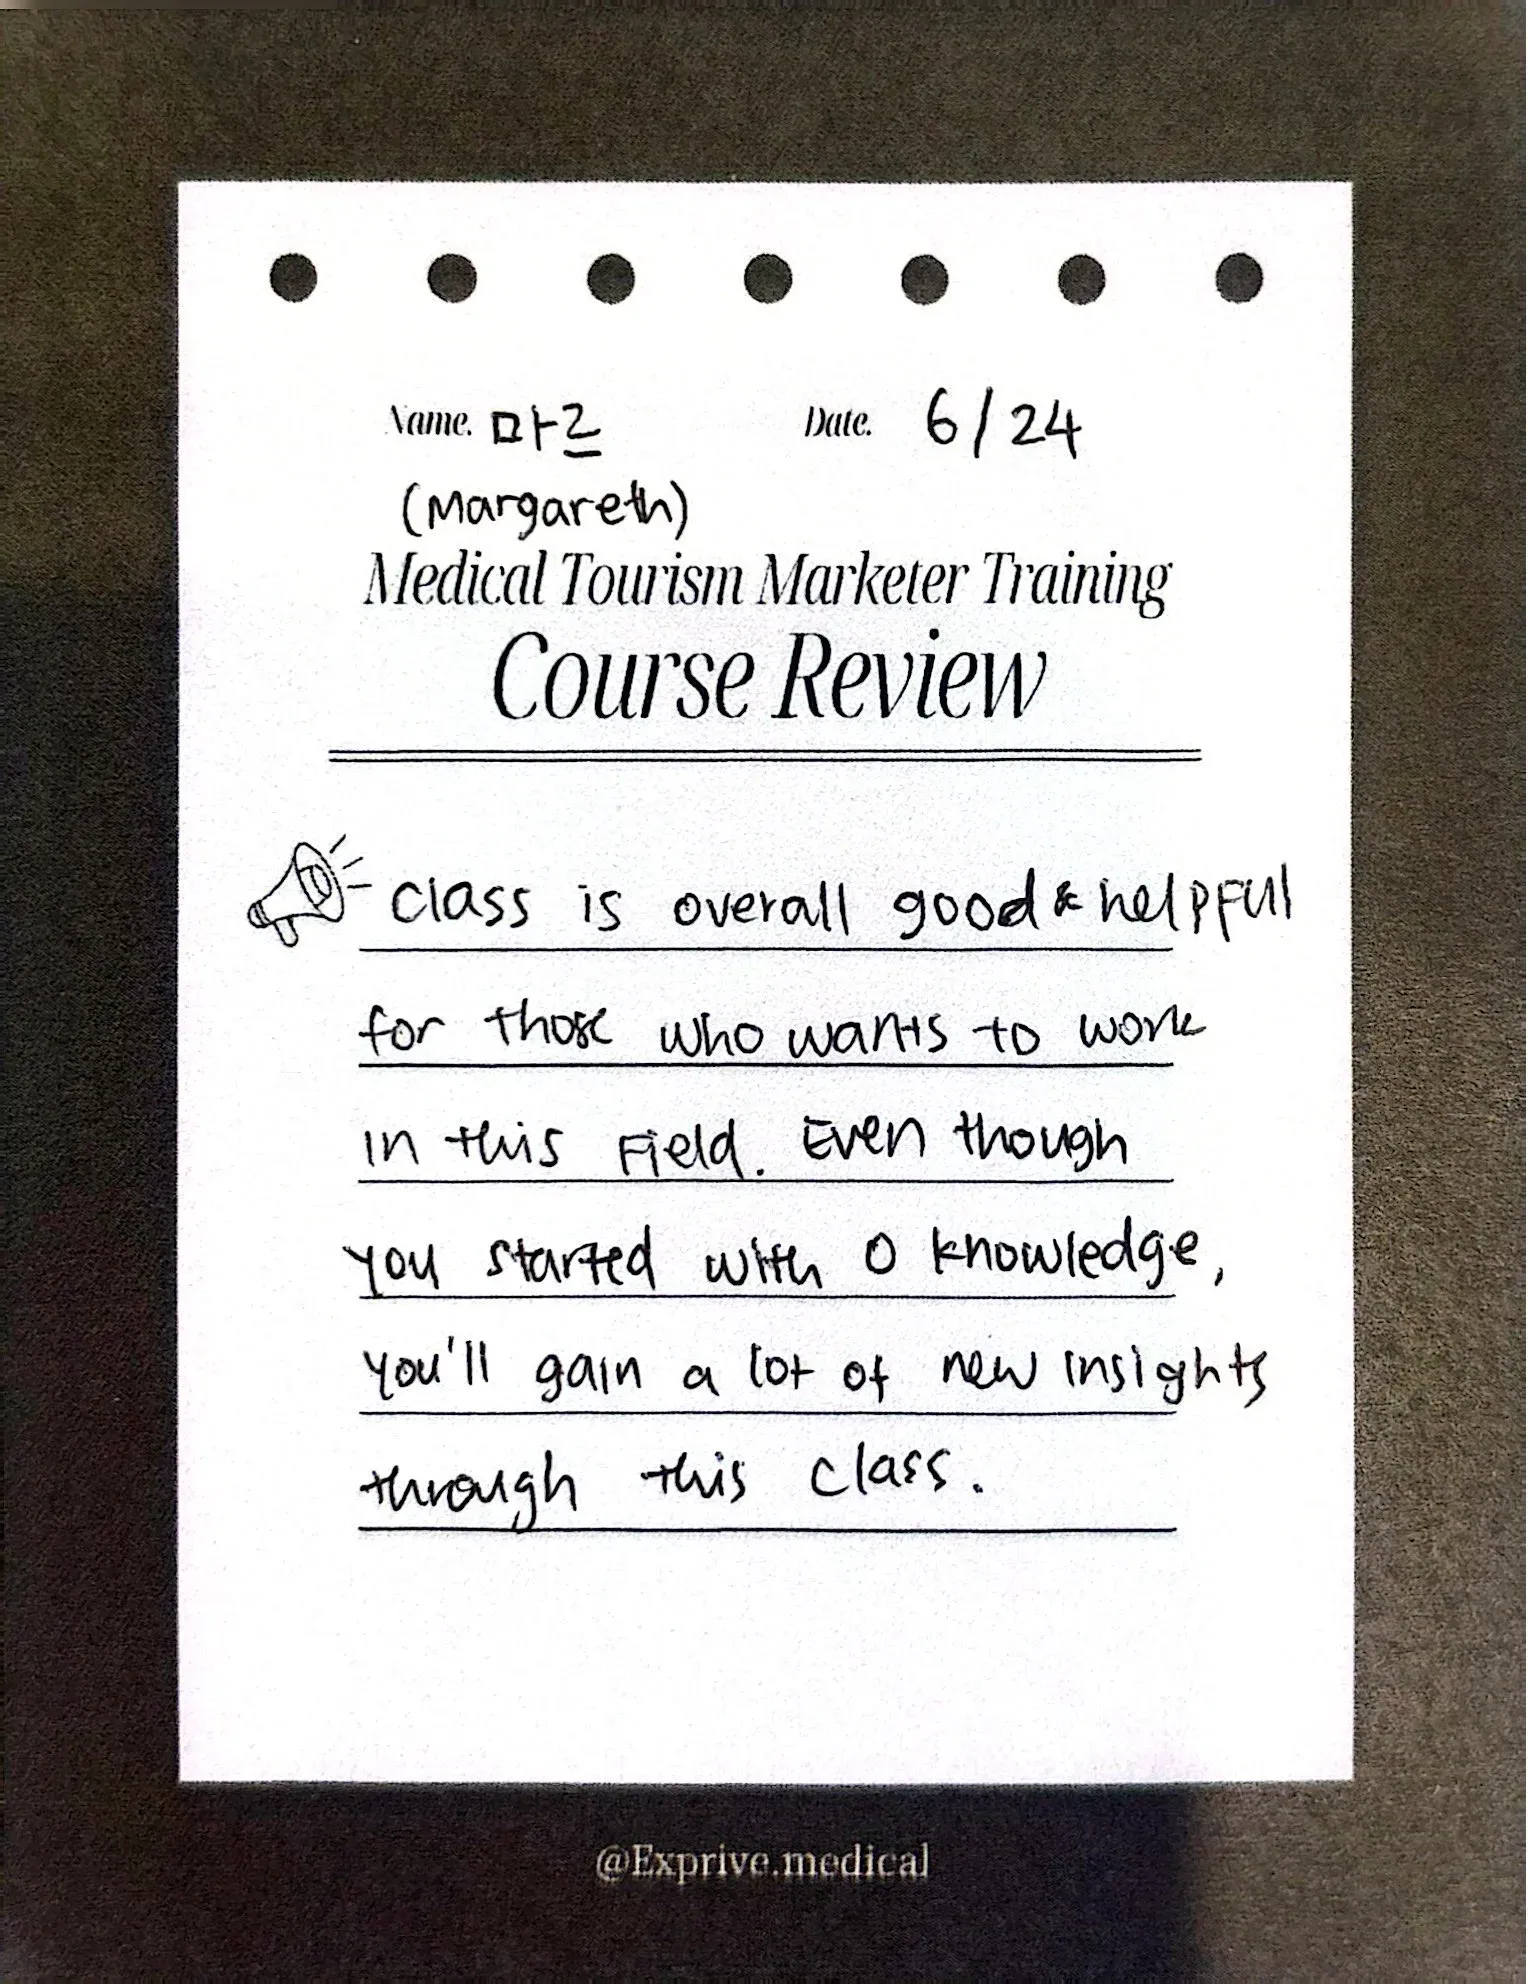 Name. 마르 Date. 6/24
(Margareth)
Medical Tourism Marketer Training
Course Review
class is overall good & helpful
for those who wants to work
in this Field. Even though
you started with 0 knowledge,
you'll gain a lot of new insights
through this class.
@Exprive.medical